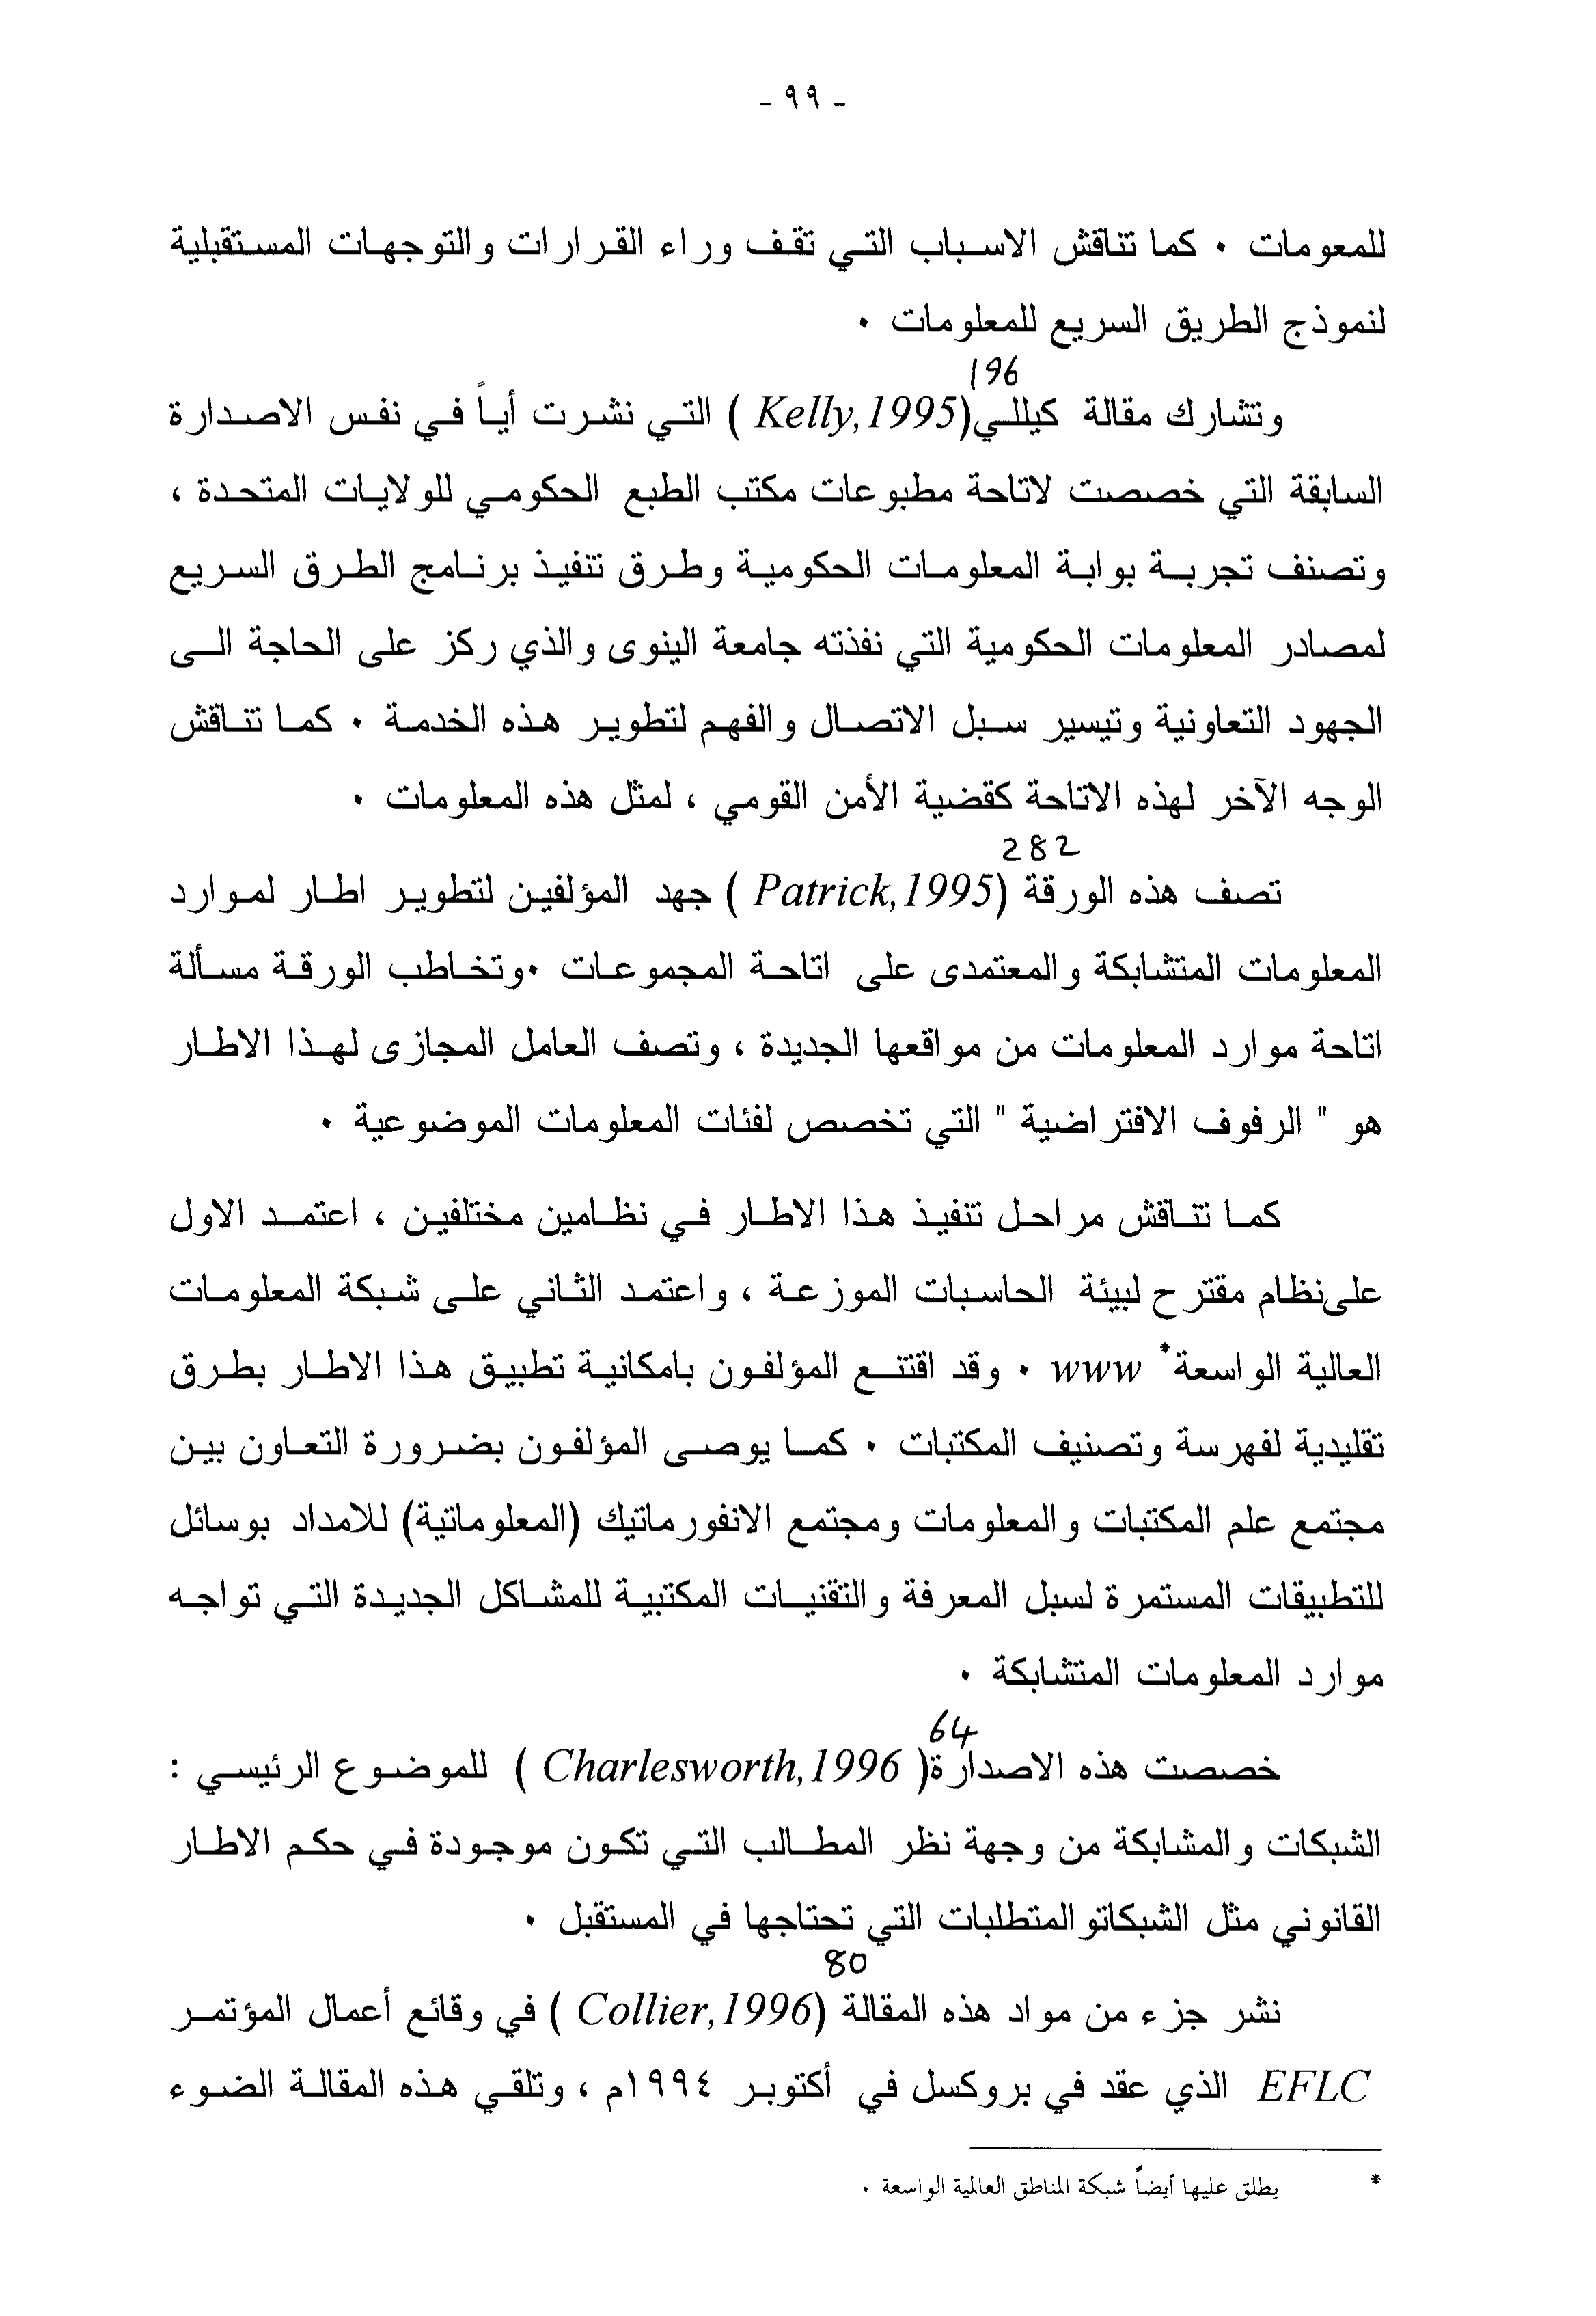 - ٩٩ -
للمعومات ٠ كما تناقش الاسباب التي تقف وراء القرارات والتوجهات المستقبلية
لنموذج الطريق السريع للمعلومات ٠
196
وتشارك مقالة كيللي(Kelly,1995 ) التي نشرت أياً في نفس الاصدارة
السابقة التي خصصت لاتاحة مطبوعات مكتب الطبع الحكومي للولايات المتحدة ،
وتصنف تجربة بوابة المعلومات الحكومية وطرق تنفيذ برنامج الطرق السريع
لمصادر المعلومات الحكومية التي نفذته جامعة الينوى والذي ركز على الحاجة الى
الجهود التعاونية وتيسير سبل الاتصال والفهم لتطوير هذه الخدمة ٠ كما تناقش
الوجه الآخر لهذه الاتاحة كقضية الأمن القومي ، لمثل هذه المعلومات ٠
282
تصف هذه الورقة (Patrick,1995 ) جهد المؤلفين لتطوير اطار لموارد
المعلومات المتشابكة والمعتمدى على اتاحة المجموعات ٠وتخاطب الورقة مسألة
اتاحة موارد المعلومات من مواقعها الجديدة ، وتصف العامل المجازى لهذا الاطار
هو " الرفوف الافتراضية " التي تخصص لفئات المعلومات الموضوعية ٠
كما تناقش مراحل تنفيذ هذا الاطار في نظامين مختلفين ، اعتمد الاول
على‌نظام مقترح لبيئة الحاسبات الموزعة ، واعتمد الثاني على شبكة المعلومات
العالية الواسعة* www ٠ وقد اقتنع المؤلفون بامكانية تطبيق هذا الاطار بطرق
تقليدية لفهرسة وتصنيف المكتبات ٠ كما يوصى المؤلفون بضرورة التعاون بين
مجتمع علم المكتبات والمعلومات ومجتمع الانفورماتيك (المعلوماتية) للامداد بوسائل
للتطبيقات المستمرة لسبل المعرفة والتقنيات المكتبية للمشاكل الجديدة التي تواجه
موارد المعلومات المتشابكة ٠
64
خصصت هذه الاصدارة( Charlesworth,1996 ) للموضوع الرئيسي :
الشبكات والمشابكة من وجهة نظر المطالب التي تكون موجودة في حكم الاطار
القانوني مثل الشبكاتو المتطلبات التي تحتاجها في المستقبل ٠
80
نشر جزء من مواد هذه المقالة (Collier,1996 ) في وقائع أعمال المؤتمر
EFLC الذي عقد في بروكسل في أكتوبر ١٩٩٤م ، وتلقي هذه المقالة الضوء
* يطلق عليها أيضاً شبكة المناطق العالمية الواسعة ٠